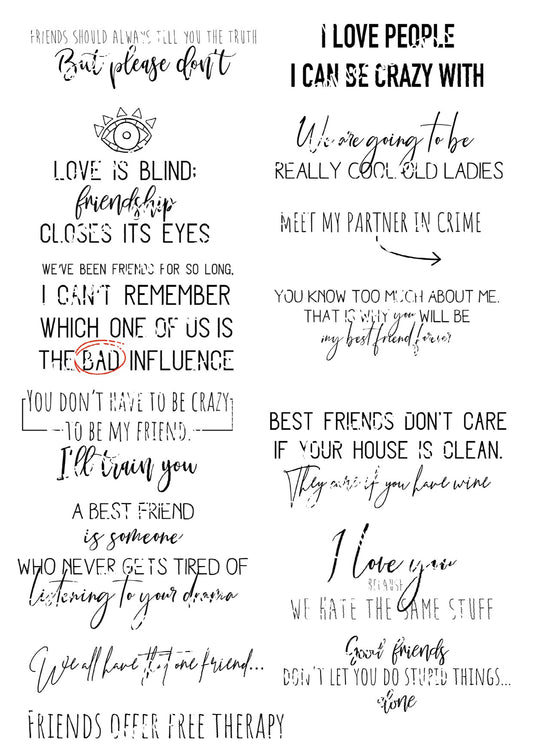 FRIENDS SHOULD ALWAYS TELL YOU THE TRUTH
But please don't
LOVE IS BLIND;
friendship
CLOSES ITS EYES
WE'VE BEEN FRIENDS FOR SO LONG,
I CAN'T REMEMBER
WHICH ONE OF US IS
THE BAD INFLUENCE
YOU DON'T HAVE TO BE CRAZY
TO BE MY FRIEND.
I'll train you
A BEST FRIEND
is someone
WHO NEVER GETS TIRED OF
listening to your drama
We all have that one friend...
FRIENDS OFFER FREE THERAPY
I LOVE PEOPLE
I CAN BE CRAZY WITH
We are going to be
REALLY COOL OLD LADIES
MEET MY PARTNER IN CRIME
YOU KNOW TOO MUCH ABOUT ME.
THAT IS WHY you WILL BE
my best friend forever
BEST FRIENDS DON'T CARE
IF YOUR HOUSE IS CLEAN.
They care if you have wine
I love you
BECAUSE
WE HATE THE SAME STUFF
Good friends
DON'T LET YOU DO STUPID THINGS...
alone